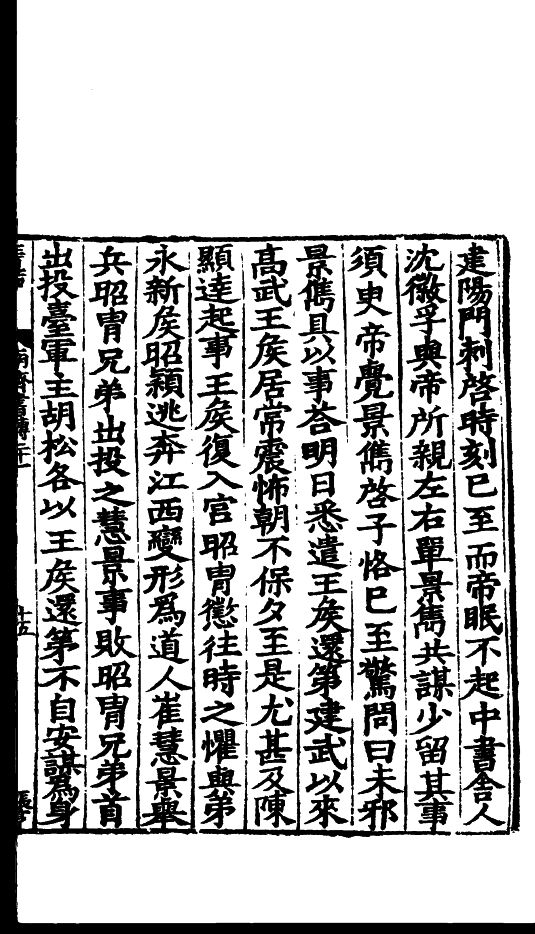 建陽門刺啓時刻已至而帝眠不起中書舍人
沈徽孚與帝所親左右單景雋共謀少留其事
須臾帝覺景雋啓子恪已至驚問曰未邪
景雋具以事荅明日悉遣王矦還第建武以來
髙武王矦居常震怖朝不保夕至是尤甚及陳
顯達起事王矦復入宫昭胄懲往時之懼與弟
永新矦昭穎逃奔江西變形爲道人崔慧景舉
兵昭胄兄弟出投之慧景事敗昭胄兄弟首
出投臺軍主胡松各以王矦還第不自安謀爲身
十五